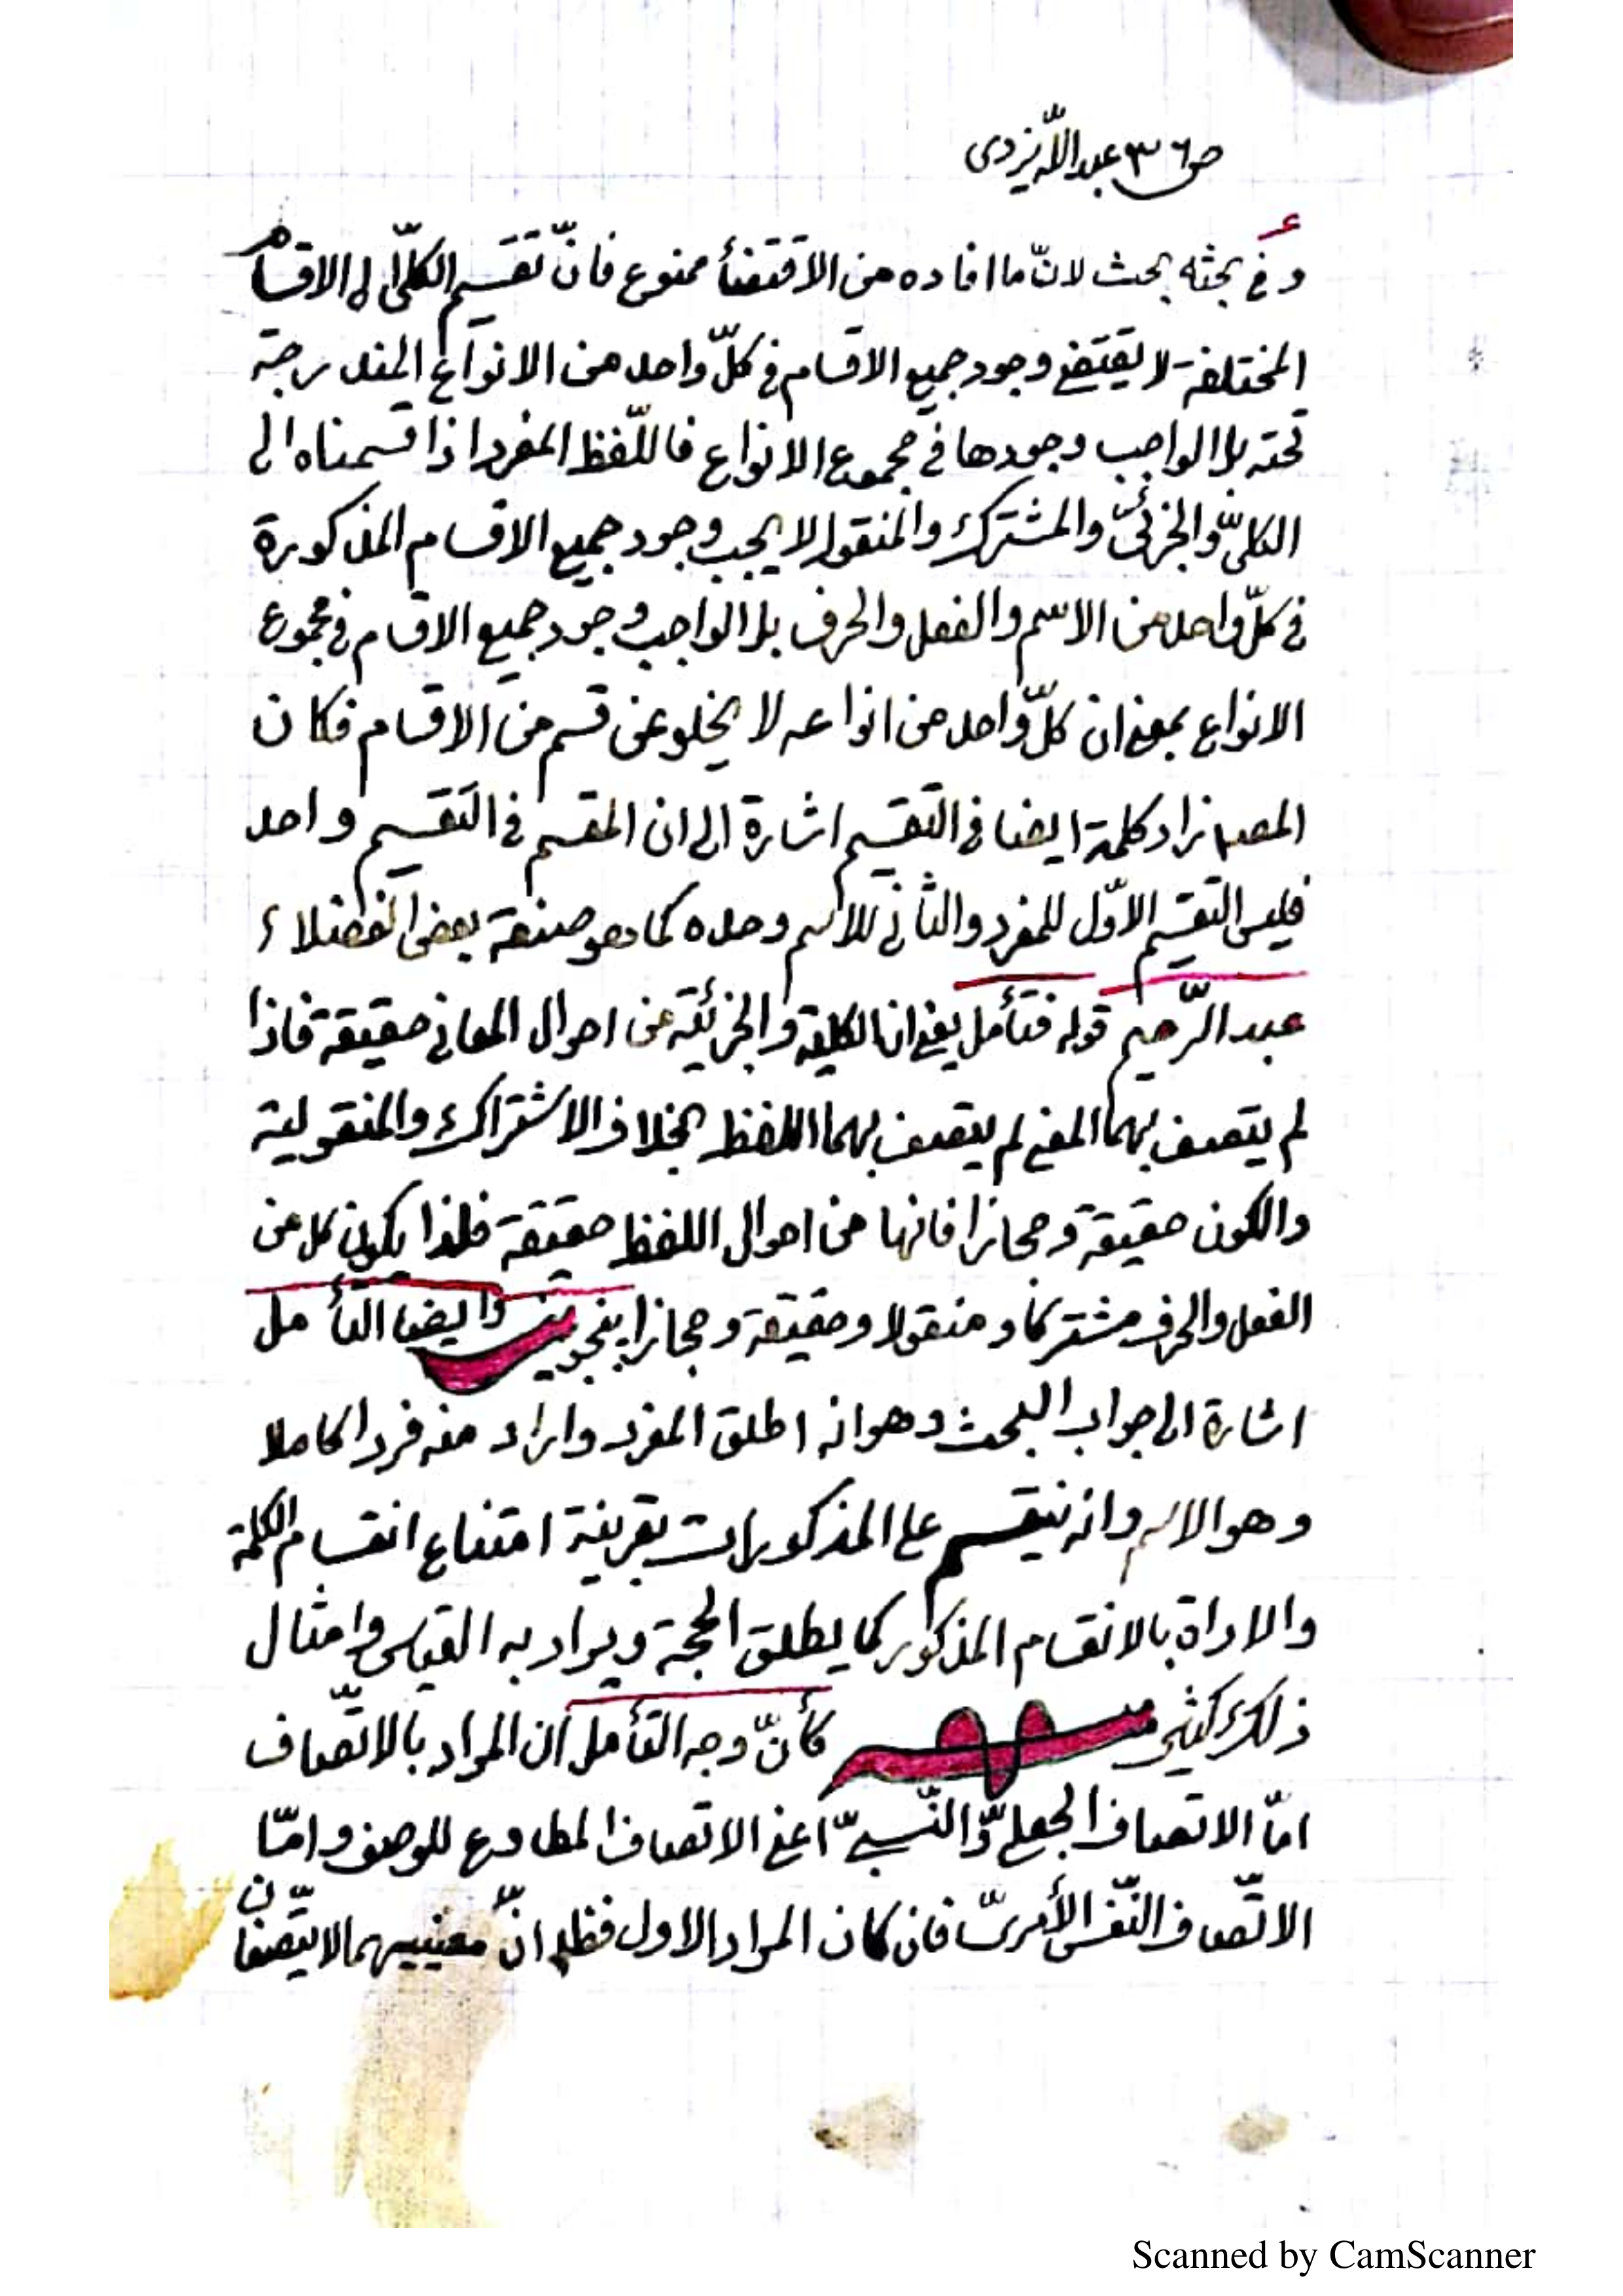 ص٣٦ عبداللّه یزدی
و فی بحثه بحث لانّ ما افاده من الاقتضأ ممنوع فانّ تقسیم الکلّی الی الاقسام
المختلفة لا یقتضی وجود جمیع الاقسام فی کلّ واحد من الانواع المندرجة
تحته بل الواجب وجودها فی مجموع الانواع فاللّفظ المفرد اذا قسمناه الی
الکلّی والجزئیّ والمشترک والمنقول لا یجب وجود جمیع الاقسام المذکورة
فی کلّ واحد من الاسم والفعل والحرف بل الواجب وجود جمیع الاقسام فی مجموع
الانواع بمعنی ان کلّ واحد من انواعه لا یخلو عن قسم من الاقسام فکان
المصـ زاد کلمة ایضا فی التقسیم اشارة الی ان المقسم فی التقسیم واحد
فلیس التقسیم الاوّل للمفرد والثانی للاسم وحده کما هو صنعة بعض الفضلاء
عبد الرّحیم قوله فتأمل یعنی ان الکلیة والجزئیّة من احوال المعانی حقیقة فاذا
لم یتصف بهما المعنی لم یتصف بهما اللفظ بخلاف الاشتراک والمنقولیة
والکون حقیقة و مجازا فانها من احوال اللفظ حقیقة فلذا یکون کل من
الفعل والحرف مشترکا و منقولا و حقیقة و مجازا وایضا التأمل
اشارة الی جواب البحث وهو انه اطلق المفرد واراد منه فردا کاملا
وهو الاسم وانه ینقسم علی المذکورات بقرینة امتناع انقسام الکلمة
والاداة بالانقسام المذکور کما یطلق الحجة ویراد به القیاس وامثال
ذلک کثیر کأنّ وجه التأمل ان المراد بالاتّصاف
امّا الاتصاف الجعلیّ والنّسبیّ اعنی الاتصاف المطاوع للوصف وامّا
الاتّصاف النّفس الأمریّ فان کان المراد الاول فظـ انّ معنییهما لا یتّصفان
Scanned by CamScanner